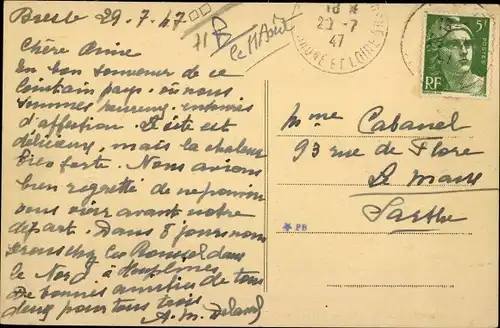 29.7.47
le 11 Août
18 H
29-7
47
SAONE ET LOIRE
5F
POSTES
RF
Chère Amie
En bon souvenir de ce
lointain pays où nous
sommes heureux, entourés
d'affection. Le site est
délicieux, mais la chaleur
bien forte. Nous avions
bien regretté de ne pouvoir
vous voir avant notre
départ. Dans 8 jours nous
serons chez les dans
le Nord à Houplines
De bonnes amitiés de tous
deux pour tous trois
A. M.
Mme Cabanel
93 rue de Flore
Le Mans
Sarthe
PB